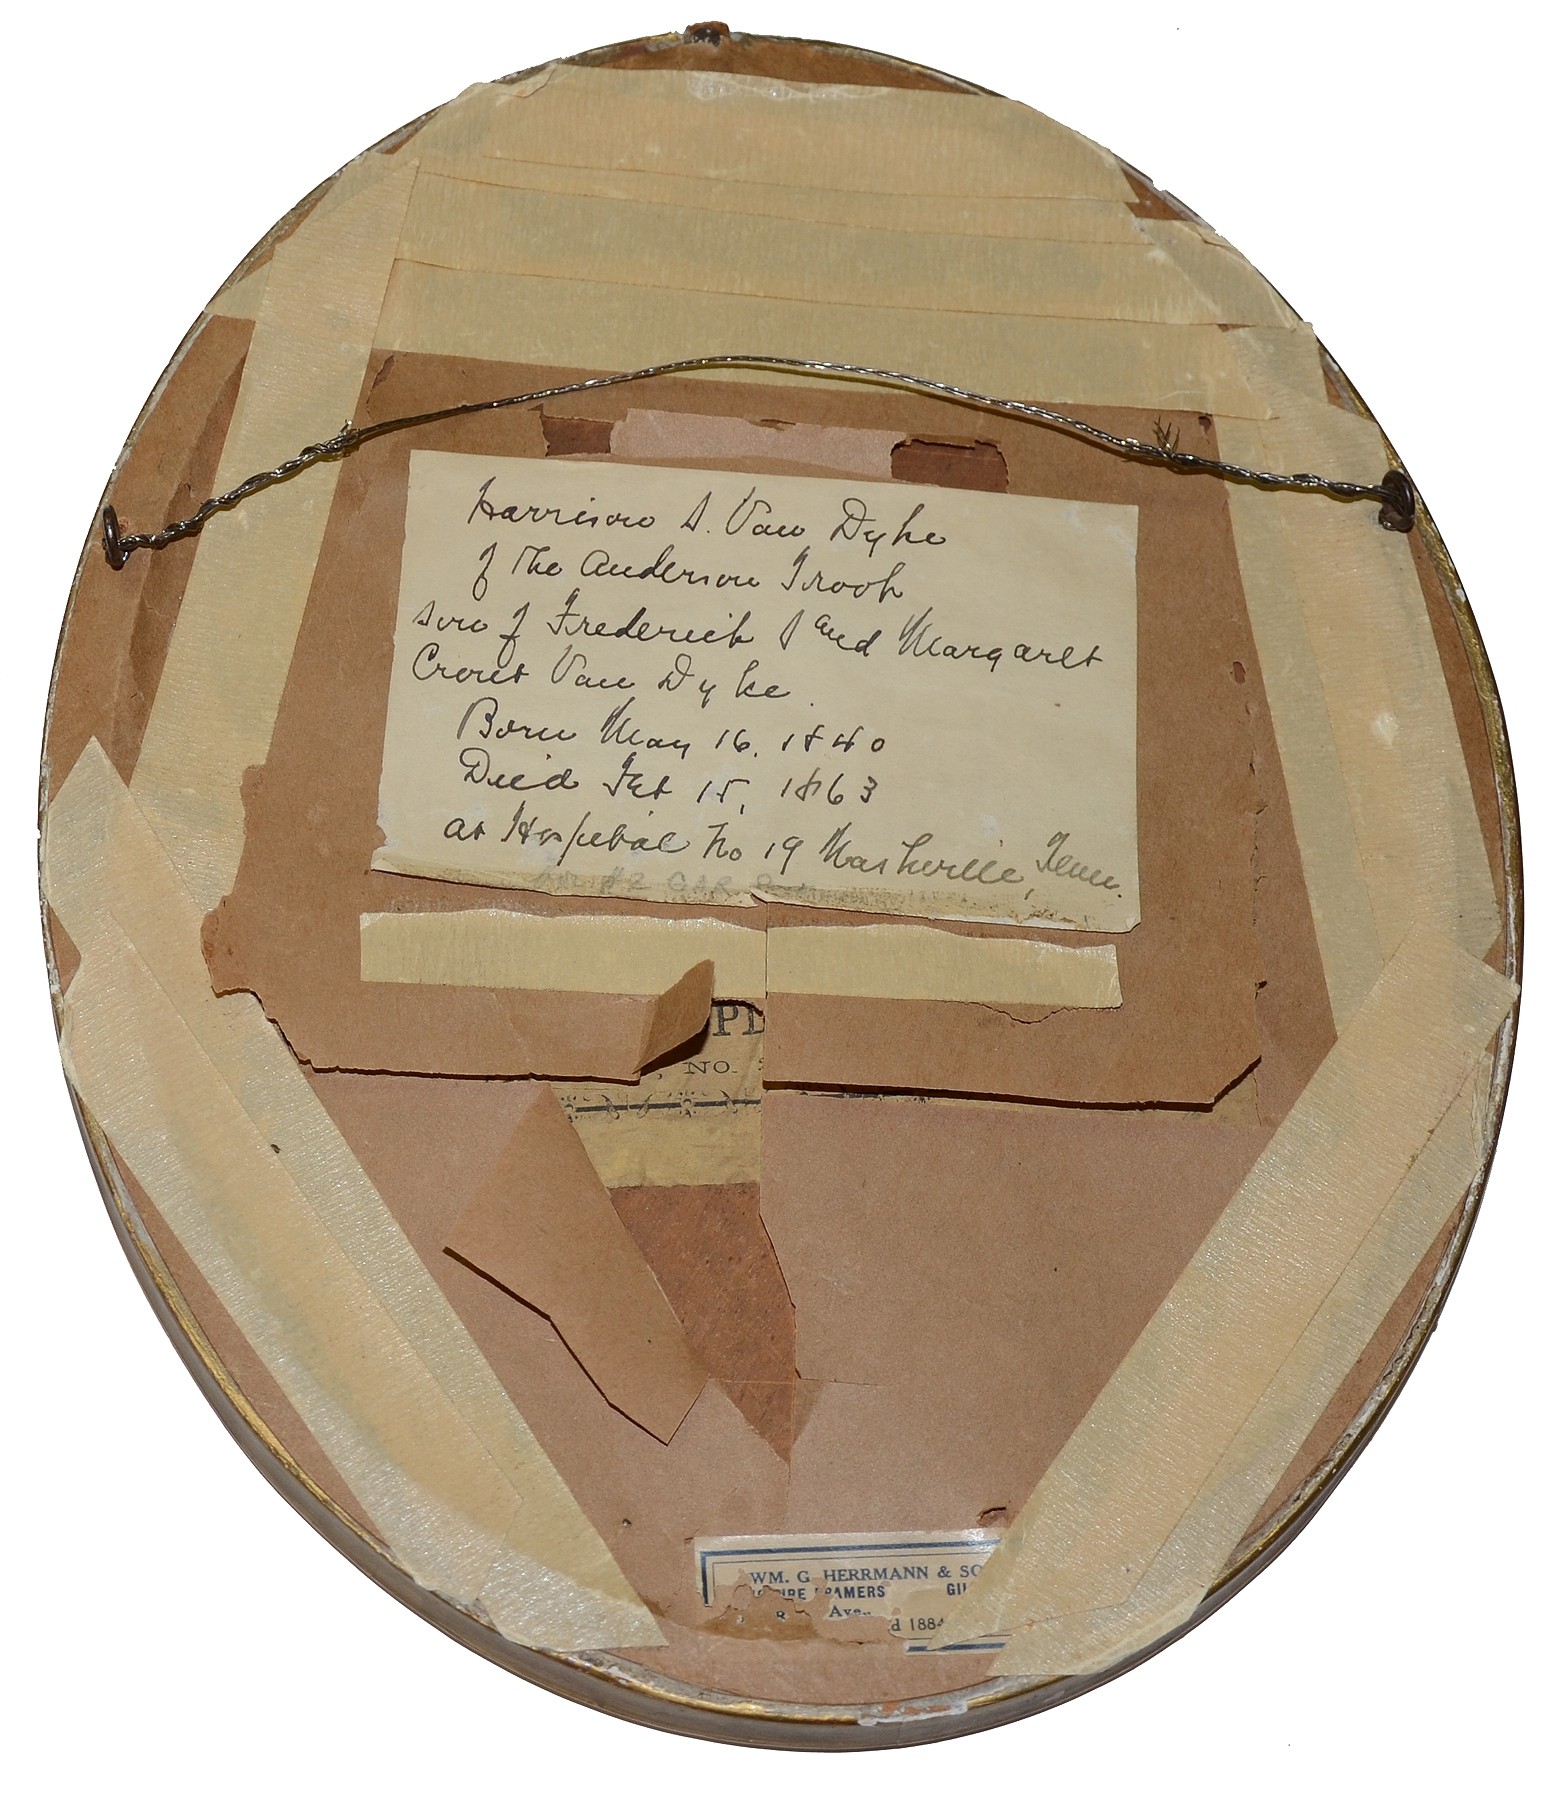 Harrison S. Van Dyke
of The Anderson Troop
son of Frederick S and Margaret
Crout Van Dyke.
Born May 16, 1840
Died Feb 15, 1863
at Hospital No 19 Nashville, Tenn.
PL
, NO.
WM. G. HERRMANN & SO
FRAMERS GIL
Ave.,
d 1884